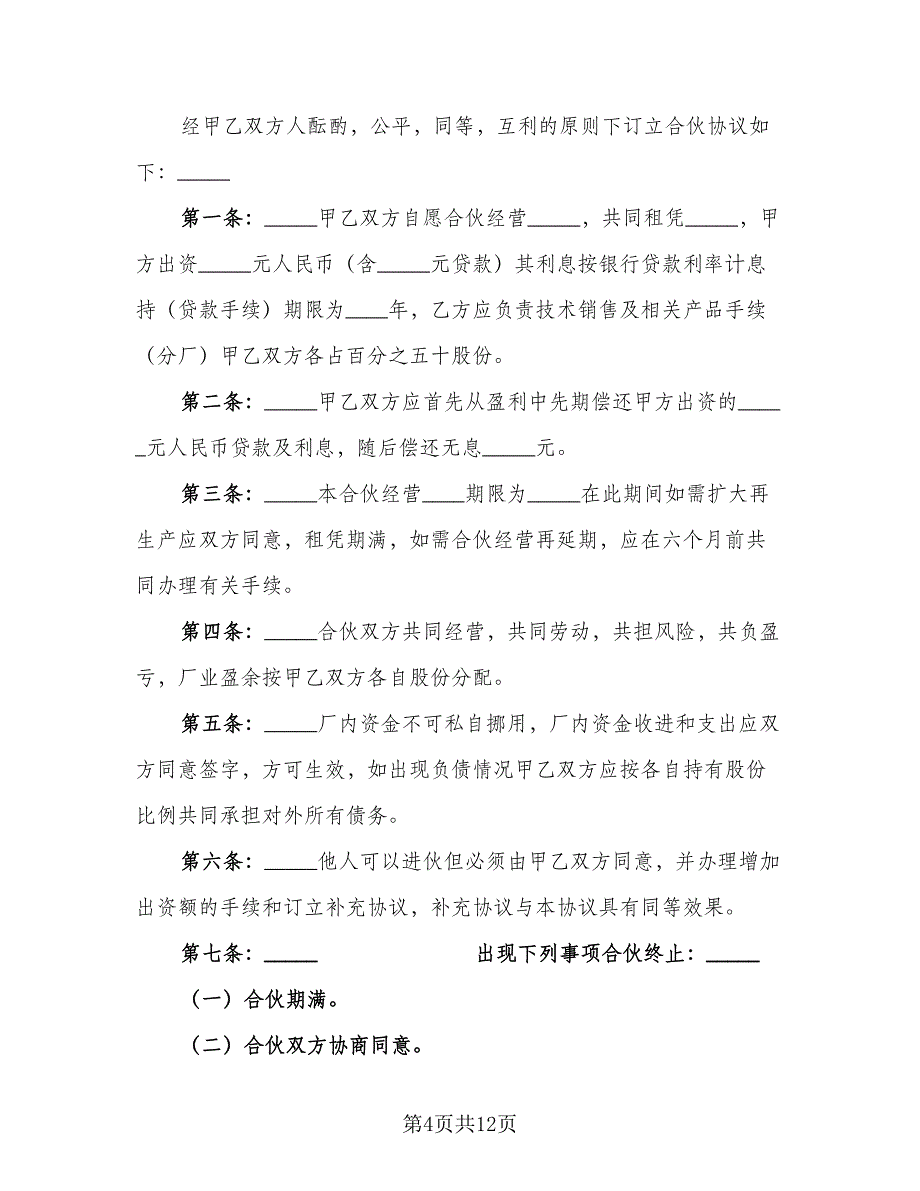 经甲乙双方人酝酌，公平，同等，互利的原则下订立合伙协议如
下：_____
第一条：_____甲乙双方自愿合伙经营_____，共同租凭_____，甲
方出资_____元人民币（含_____元贷款）其利息按银行贷款利率计息
持（贷款手续）期限为____年，乙方应负责技术销售及相关产品手续
（分厂）甲乙双方各占百分之五十股份。
第二条：_____甲乙双方应首先从盈利中先期偿还甲方出资的____
_元人民币贷款及利息，随后偿还无息_____元。
第三条：_____本合伙经营____期限为_____在此期间如需扩大再
生产应双方同意，租凭期满，如需合伙经营再延期，应在六个月前共
同办理有关手续。
第四条：_____合伙双方共同经营，共同劳动，共担风险，共负盈
亏，厂业盈余按甲乙双方各自股份分配。
第五条：_____厂内资金不可私自挪用，厂内资金收进和支出应双
方同意签字，方可生效，如出现负债情况甲乙双方应按各自持有股份
比例共同承担对外所有债务。
第六条：_____他人可以进伙但必须由甲乙双方同意，并办理增加
出资额的手续和订立补充协议，补充协议与本协议具有同等效果。
第七条：_____ 出现下列事项合伙终止：_____
（一）合伙期满。
（二）合伙双方协商同意。
第4页共12页